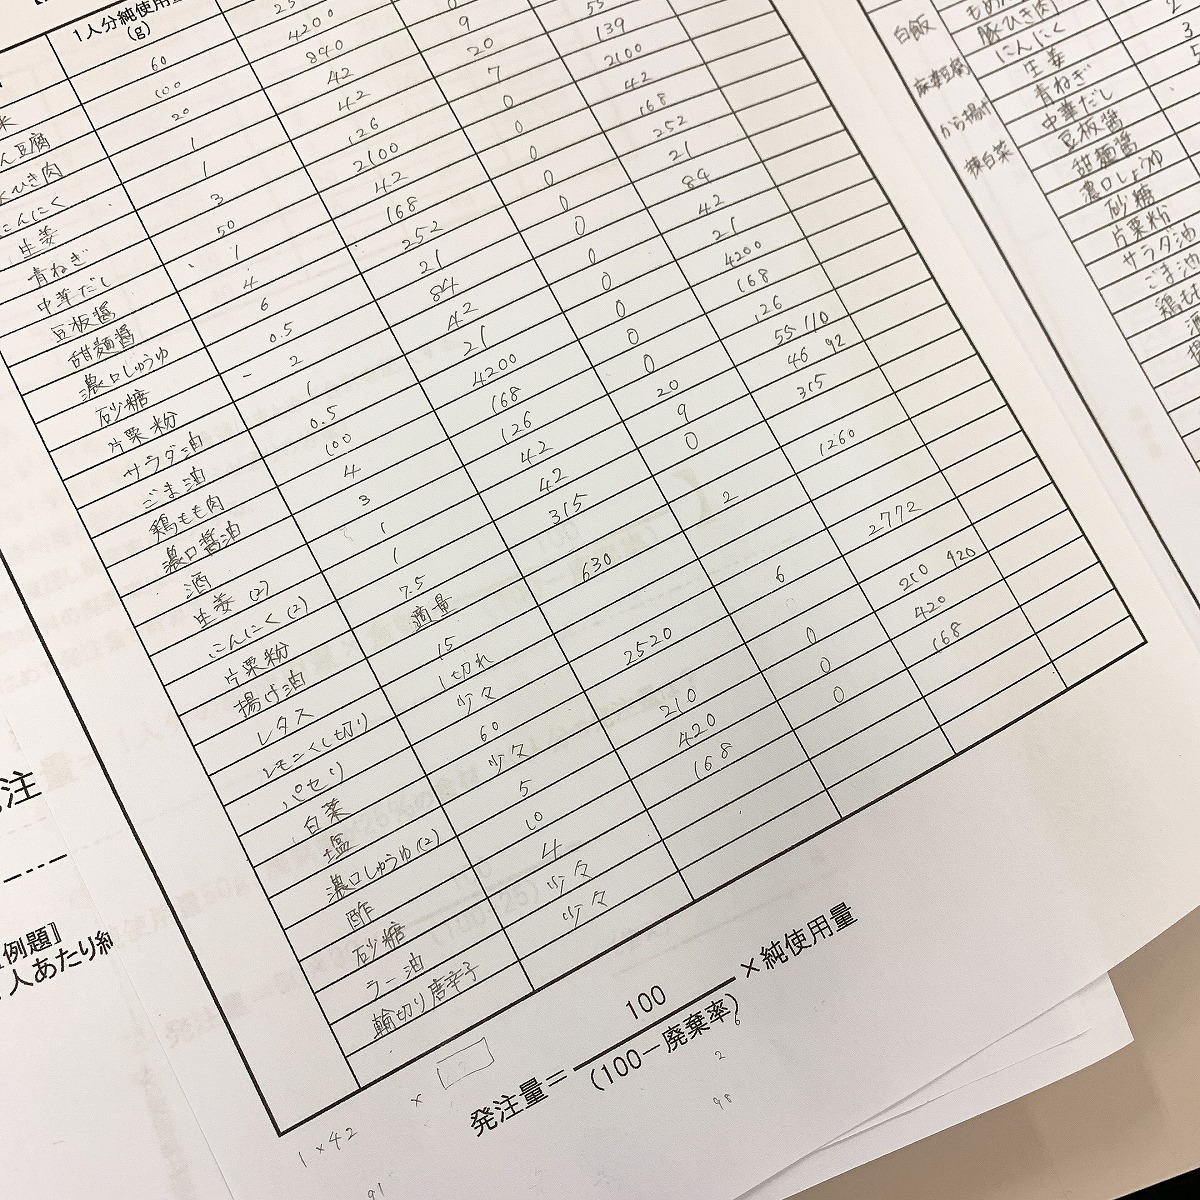 1人分純使用量
(g)
米 60 25
ん豆腐 100 4200 9 55
ひき肉 20 840 20 139
にんにく 1 42 7 2100
生姜 1 42 0 42
青ねぎ 3 126 0 168
中華だし 50 2100 0 252
豆板醤 1 42 0 21
甜麺醤 4 168 0 84
濃口しょうゆ 6 252 0 42
砂糖 0.5 21 0 21
片栗粉 2 84 0 4200
サラダ油 1 42 0 168
ごま油 0.5 21 0 126
鶏もも肉 100 4200 0 55 110
濃口醤油 4 168 20 46 92
酒 3 126 9 315
生姜(2) 1 42 0
にんにく(2) 1 42
片栗粉 7.5 315
揚げ油 適量
レタス 15 630 2 1260
レモンくし切り 1切れ
パセリ 少々
白菜 60 2520 6 2772
塩 少々
濃口しょうゆ(2) 5 210 0 210 420
酢 10 420 0 420
砂糖 4 168 0 168
ラー油 少々
輪切り唐辛子 少々
発注量=100/(100-廃棄率)×純使用量
1×42
×
91
2
98
白飯
麻婆豆腐
から揚げ
辣白菜
豚ひき肉
にんにく
生姜
青ねぎ
中華だし
豆板醤
甜麺醤
濃口しょうゆ
砂糖
片栗粉
サラダ油
ごま油
注
例題』
人あたり純